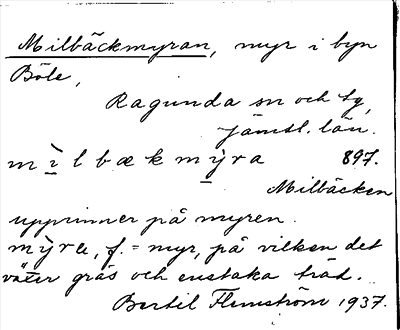 Milbäckmyran, myr i byn
Böle,
Ragunda sn och tg,
Jämtl. län.
mìlbækmỳra 897.
Milbäcken
upprinner på myren.
mỳra, f. = myr, på vilken det
växer gräs och enstaka träd.
Bertil Flemström 1937.